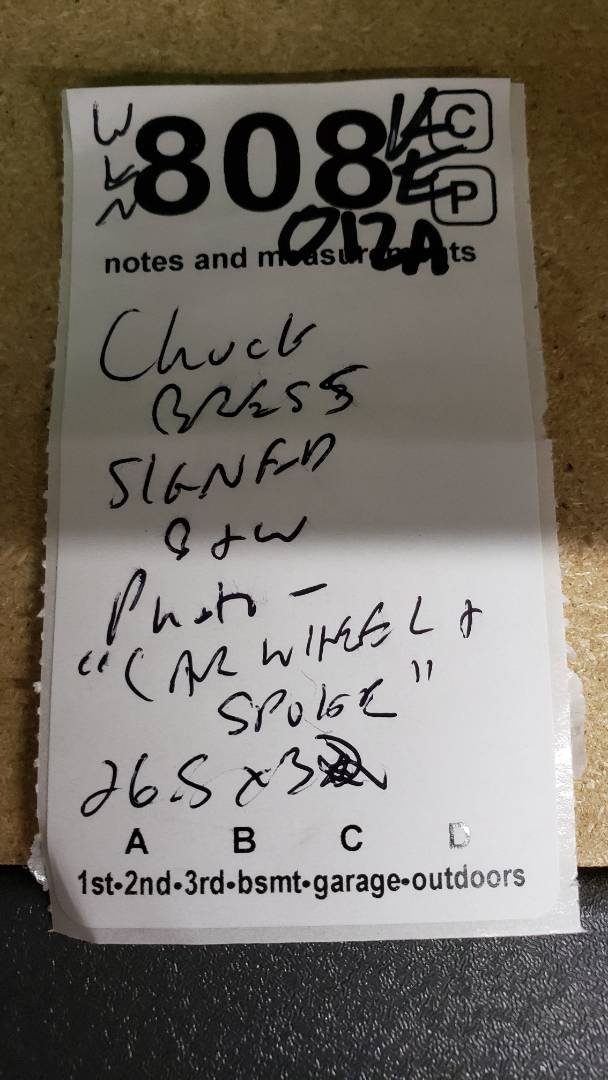 808
C
P
012A
notes and measurements
Chuck
BRESS
SIGNED
B+W
Photo -
"CAR WHEEL &
SPOKE"
26.5 x 3
A B C D
1st•2nd•3rd•bsmt•garage•outdoors